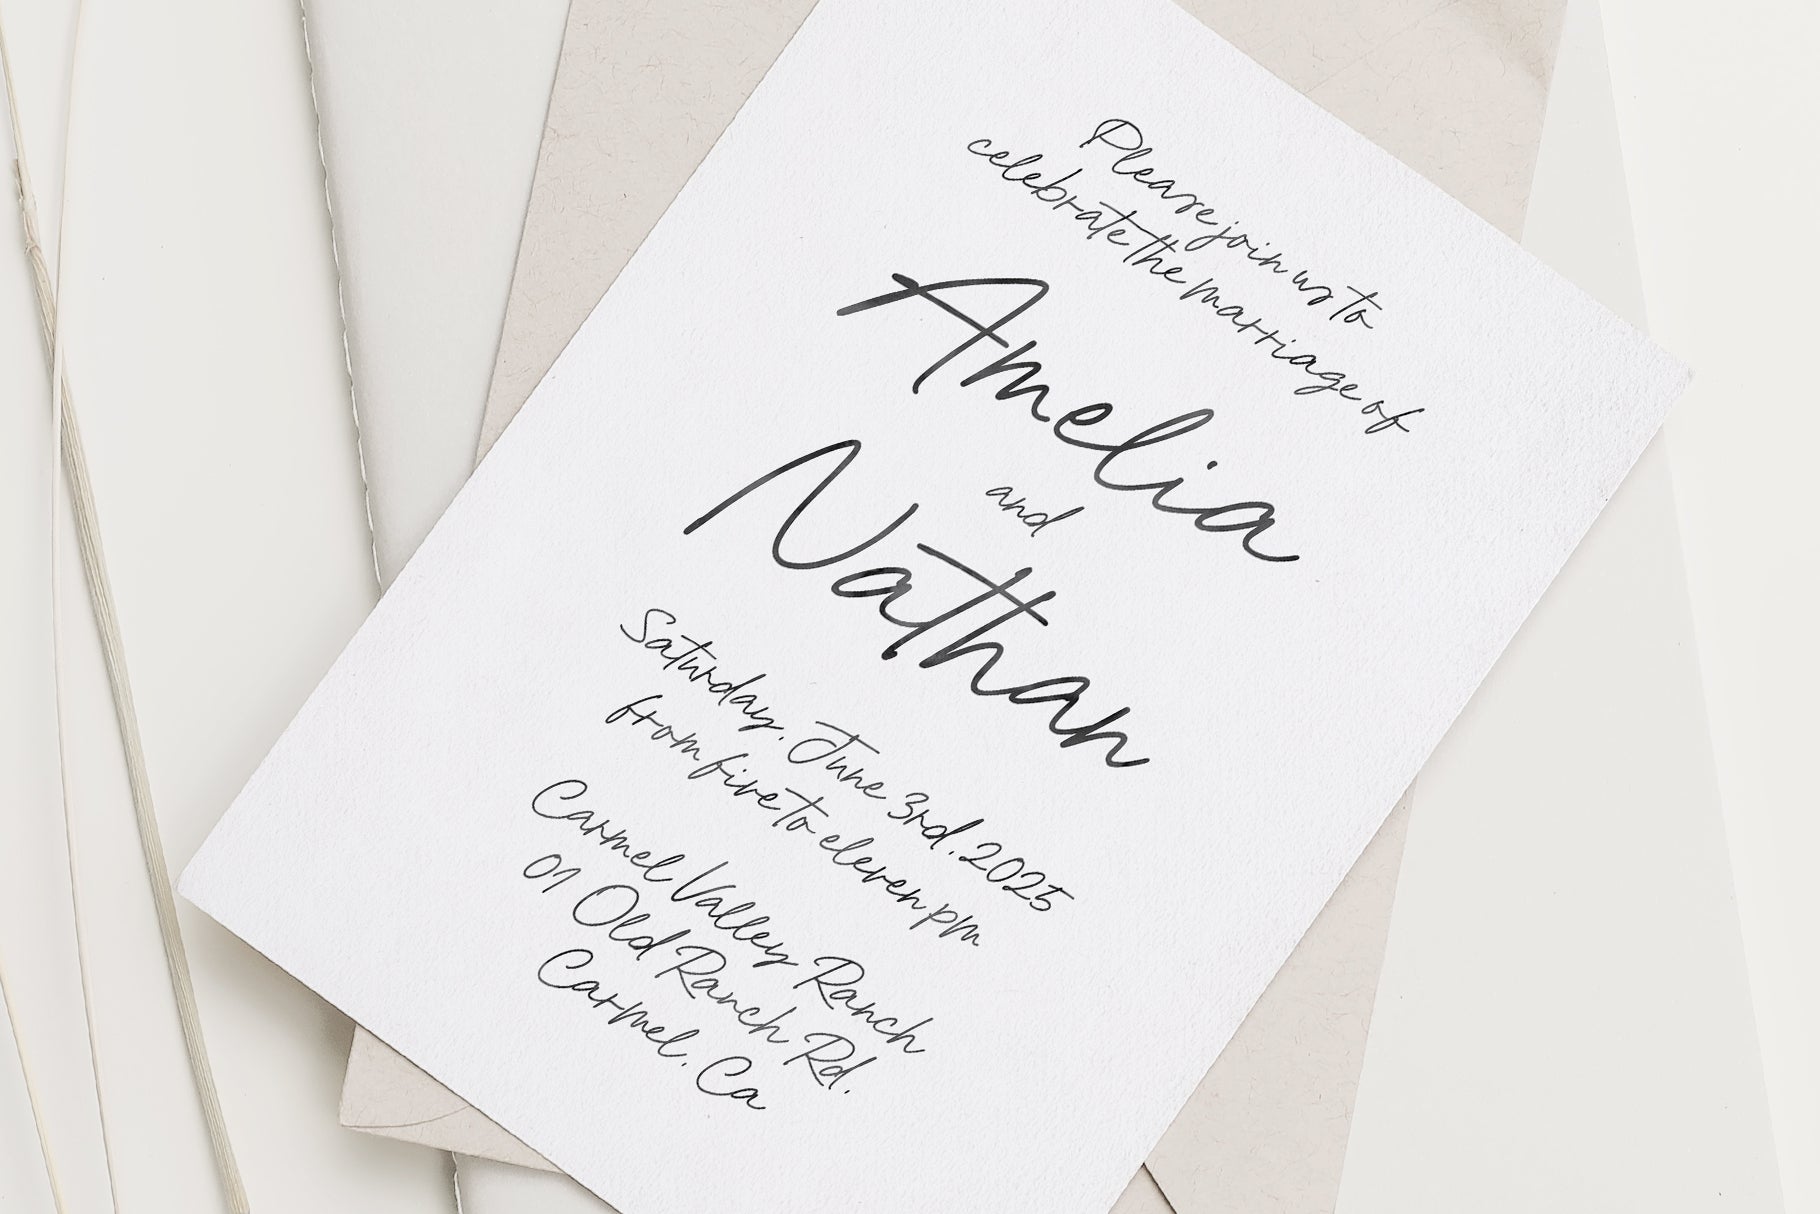 Please join us to
celebrate the marriage of
Amelia
and
Nathan
Saturday, June 3rd, 2025
from five to eleven pm
Carmel Valley Ranch
01 Old Ranch Rd.
Carmel, Ca